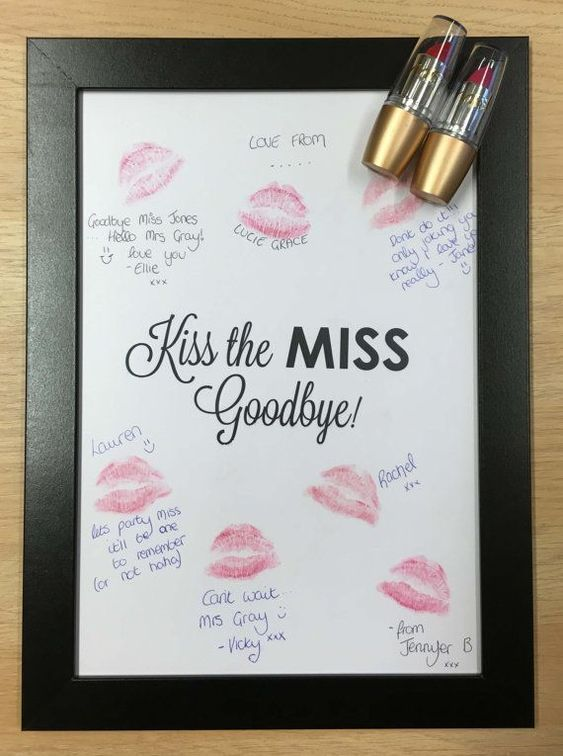 LOVE FROM
.....
LUCIE GRACE
Goodbye Miss Jones
... Hello Mrs Gray!
love you
- Ellie
xxx
Dont do it!!
only joking you
know I love you
really -
Kiss the MISS
Goodbye!
Lauren
lets party miss
it'll be one
to remember
(or not haha)
Rachel
xxx
Can't wait...
Mrs Gray
- Vicky xxx
- from
Jennyfer B
xxx